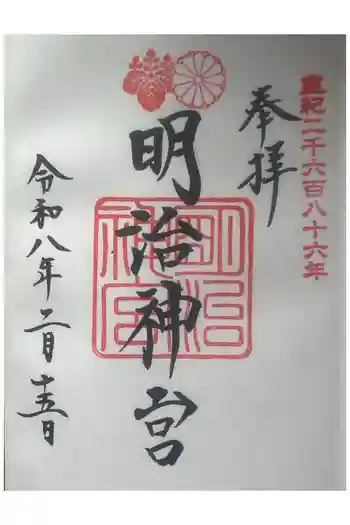 皇紀二千六百八十六年
奉拝
明治神宮
明治神宮
令和八年二月十五日